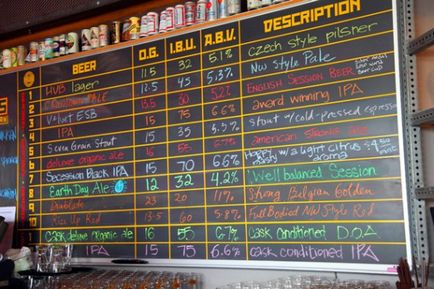 BEER O.G. I.B.U. A.B.V. DESCRIPTION
HUB lager 11.5 32 5.1% Czech style pilsner
PALE 12.5 44 5.3% NW Style Pale
Velvet ESB 13.5 30 5.2% English Session Beer
IPA 15 75 6.6% award winning IPA
Seven Grain Stout 13.5 35 5.2% Stout w/ cold-pressed espresso
deluxe organic ale 16 55 6.7% american strong ale
7 Secession Black IPA 15 70 6.6% Hoppy w/ a light citrus aroma
8 Earth Day Ale 12 32 4.2% Well balanced Session
9 20 Strong Belgian Golden
10 Rise Up Red 13.5 60 5.8% Full Bodied NW Style Red
Cask deluxe organic ale 16 55 6.7% Cask Conditioned D.O.A
IPA 15 75 6.6% Cask conditioned IPA